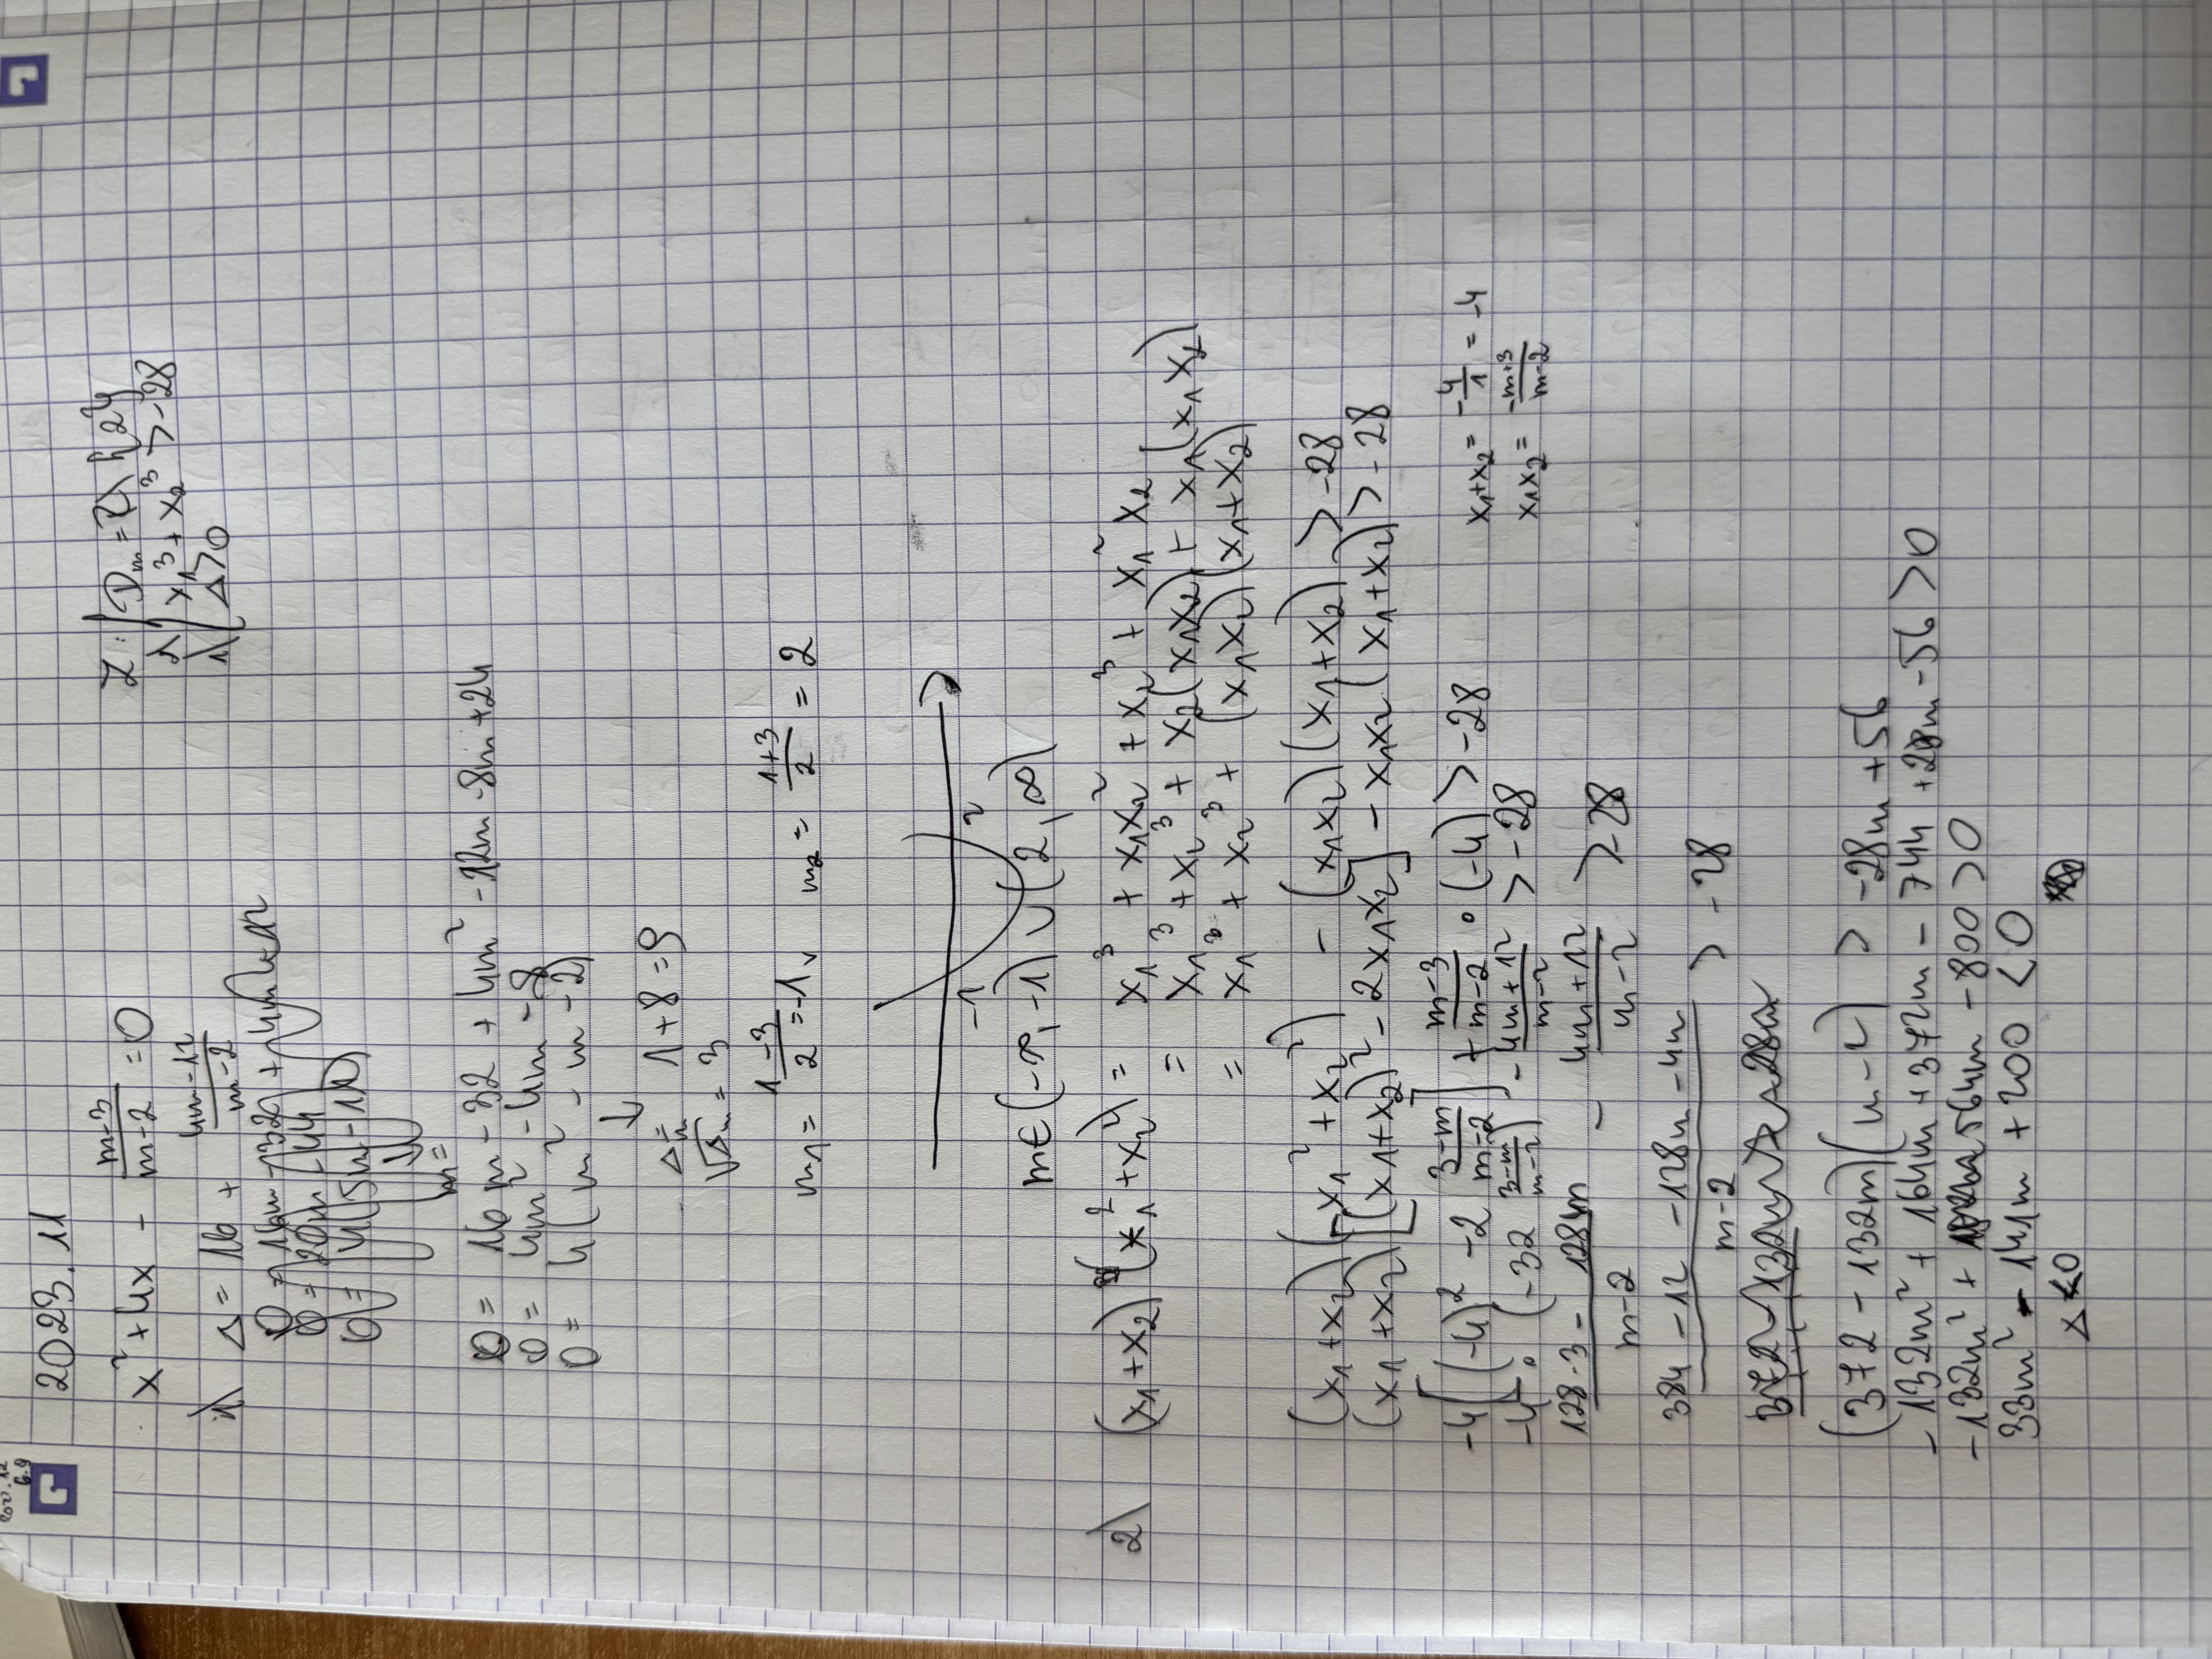 2023.11
x² + 4x - \frac{m-3}{m-2} = 0
Z: D_m = R \ {2}
2) x₁³ + x₂³ > -28
1) Δ > 0
1) Δ = 16 + \frac{4m-12}{m-2}
0 = 16m - 32 + 4m² - 12m - 8m + 24
0 = 4m² - 4m - 8
0 = 4(m² - m - 2)
↓
Δ_m = 1 + 8 = 9
√Δ_m = 3
m₁ = \frac{1-3}{2} = -1 ∨ m₂ = \frac{1+3}{2} = 2
-1 2
m ∈ (-∞, -1) ∪ (2, ∞)
2) (x₁ + x₂)(x₁² + x₂²) = x₁³ + x₁x₂² + x₂³ + x₁²x₂
= x₁³ + x₂³ + x₂(x₁x₂) + x₁(x₁x₂)
= x₁³ + x₂³ + (x₁x₂)(x₁ + x₂)
(x₁ + x₂)(x₁² + x₂²) - (x₁x₂)(x₁ + x₂) > -28
(x₁ + x₂)[(x₁ + x₂)² - 2x₁x₂] - x₁x₂(x₁ + x₂) > -28
x₁ + x₂ = -\frac{4}{1} = -4
x₁x₂ = \frac{-m+3}{m-2}
-4[(-4)² - 2 \frac{3-m}{m-2}] + \frac{m-3}{m-2} · (-4) > -28
-4 · (-32 \frac{3-m}{m-2}) - \frac{4m+12}{m-2} > -28
\frac{128·3 - 128m}{m-2} - \frac{4m+12}{m-2} > -28
\frac{384 - 12 - 128m - 4m}{m-2} > -28
(372 - 132m)(m-2) > -28m + 56
-132m² + 264m + 372m - 744 + 28m - 56 > 0
-132m² + 564m - 800 > 0
33m² - 141m + 200 < 0
Δ < 0